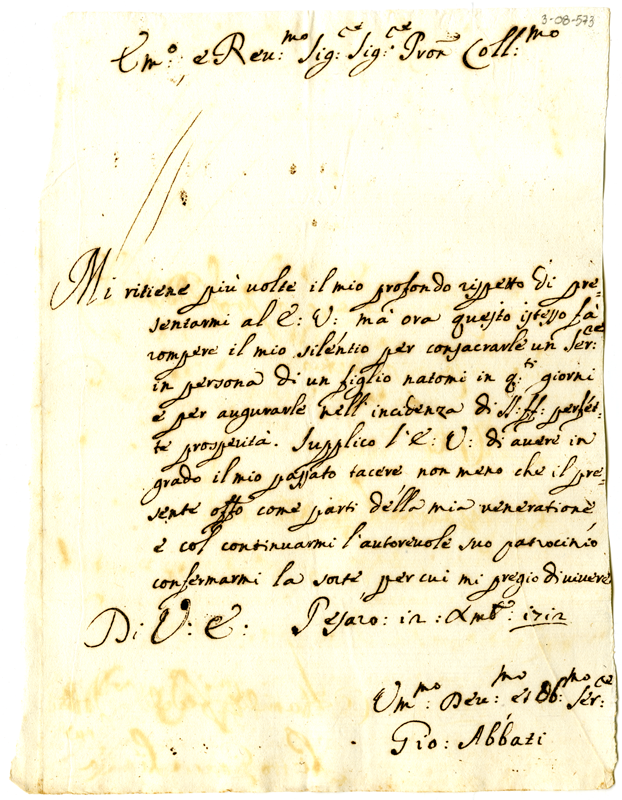 3-08-573
Em:º e Reu:mo Sig:re Sig:re Pron Coll:mo
Mi ritiene più uolte il mio profondo rispetto di pre=
sentarmi al E: V: mà ora questo istesso fà
rompere il mio siléntio per consacrarle un Ser:re
in persona di un figlio natomi in q:ti giorni
e per augurarle nell'incidenza di S: ff: perfét=
te prosperità. Supplico l'E: V: di auere in
grado il mio passato tacere non meno che il pre=
sente offo come parti délla mia ueneratione
e col continuarmi l'autoreuole suo patrocinio
confermarmi la sorte per cui mi pregio di uiuere
Di V: E: Pesaro: 12: Xmbre: 1712
Vm:mo Deu:mo et Ob:mo Ser:re
Gio: Abbati